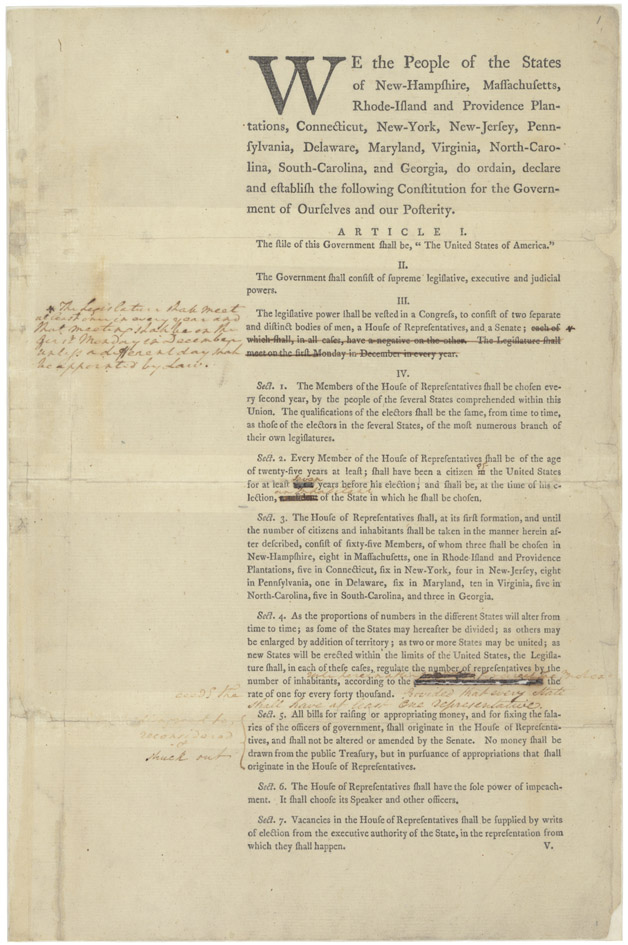 WE the People of the States
of New-Hampſhire, Maſſachuſetts,
Rhode-Iſland and Providence Plan-
tations, Connecticut, New-York, New-Jerſey, Penn-
ſylvania, Delaware, Maryland, Virginia, North-Caro-
lina, South-Carolina, and Georgia, do ordain, declare
and eſtabliſh the following Conſtitution for the Govern-
ment of Ourſelves and our Poſterity.
ARTICLE I.
The ſtile of this Government ſhall be, " The United States of America."
II.
The Government ſhall conſiſt of ſupreme legiſlative, executive and judicial
powers.
III.
The legiſlative power ſhall be veſted in a Congreſs, to conſiſt of two ſeparate
and diſtinct bodies of men, a Houſe of Repreſentatives, and a Senate; each of
which ſhall, in all caſes, have a negative on the other. The Legiſlature ſhall
meet on the firſt Monday in December in every year.
The Legislature shall meet
at least once in every year and
that meeting shall be on the
first Monday in December
unless a different day shall
be appointed by Law.
IV.
Sect. 1. The Members of the Houſe of Repreſentatives ſhall be choſen eve-
ry ſecond year, by the people of the ſeveral States comprehended within this
Union. The qualifications of the electors ſhall be the ſame, from time to time,
as thoſe of the electors in the ſeveral States, of the moſt numerous branch of
their own legiſlatures.
Sect. 2. Every Member of the Houſe of Repreſentatives ſhall be of the age
of twenty-five years at leaſt; ſhall have been a citizen in the United States
for at leaſt years before his election; and ſhall be, at the time of his e-
lection, of the State in which he ſhall be choſen.
Sect. 3. The Houſe of Repreſentatives ſhall, at its firſt formation, and until
the number of citizens and inhabitants ſhall be taken in the manner herein af-
ter deſcribed, conſiſt of ſixty-five Members, of whom three ſhall be choſen in
New-Hampſhire, eight in Maſſachuſetts, one in Rhode-Iſland and Providence
Plantations, five in Connecticut, ſix in New-York, four in New-Jerſey, eight
in Pennſylvania, one in Delaware, ſix in Maryland, ten in Virginia, five in
North-Carolina, five in South-Carolina, and three in Georgia.
Sect. 4. As the proportions of numbers in the different States will alter from
time to time; as ſome of the States may hereafter be divided; as others may
be enlarged by addition of territory; as two or more States may be united; as
new States will be erected within the limits of the United States, the Legiſla-
ture ſhall, in each of theſe caſes, regulate the number of repreſentatives by the
number of inhabitants, according to the the
rate of one for every forty thouſand. Provided that every State
shall have at least one representative.
Sect. 5. All bills for raiſing or appropriating money, and for fixing the ſala-
ries of the officers of government, ſhall originate in the Houſe of Repreſenta-
tives, and ſhall not be altered or amended by the Senate. No money ſhall be
drawn from the public Treaſury, but in purſuance of appropriations that ſhall
originate in the Houſe of Repreſentatives.
reconsidered
struck out
Sect. 6. The Houſe of Repreſentatives ſhall have the ſole power of impeach-
ment. It ſhall chooſe its Speaker and other officers.
Sect. 7. Vacancies in the Houſe of Repreſentatives ſhall be ſupplied by writs
of election from the executive authority of the State, in the repreſentation from
which they ſhall happen.
V.